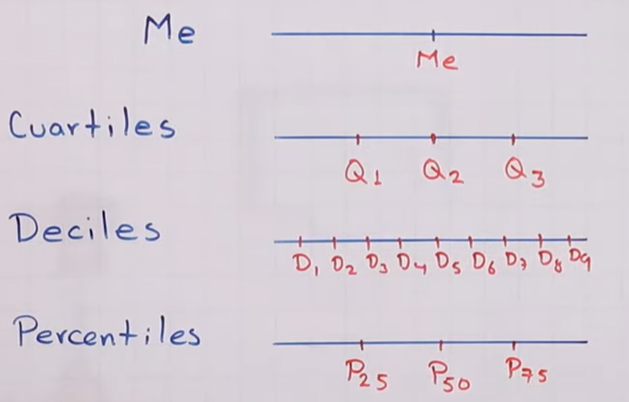 Me
Me
Cuartiles
Q1 Q2 Q3
Deciles
D1 D2 D3 D4 D5 D6 D7 D8 D9
Percentiles
P25 P50 P75